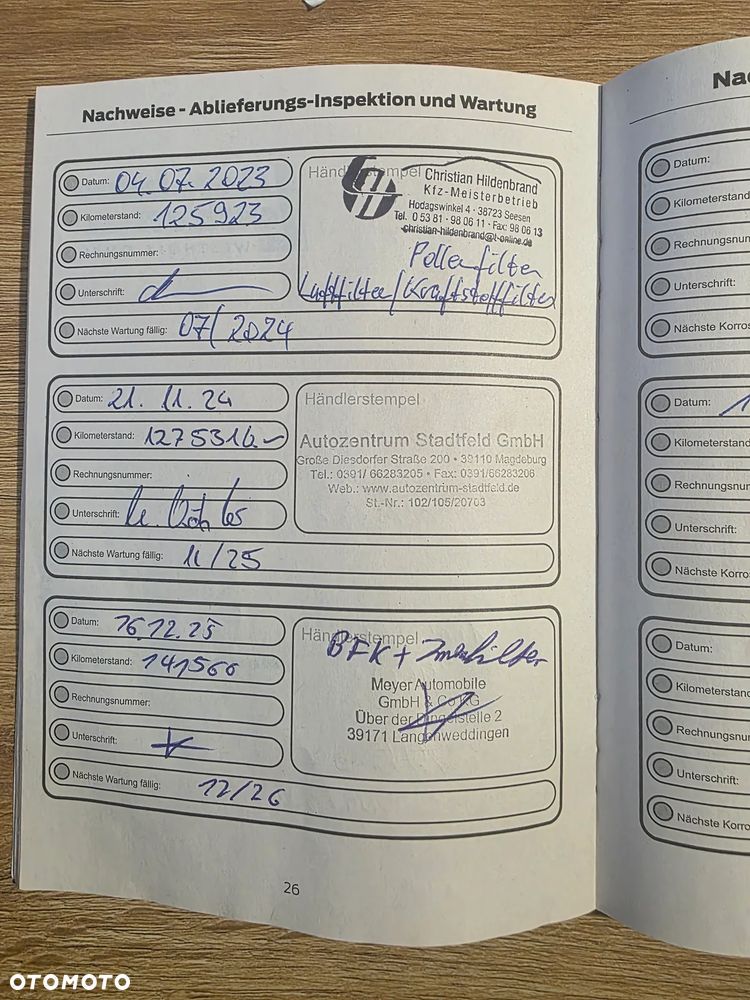 Nachweise - Ablieferungs-Inspektion und Wartung
Datum: 04.07.2023
Kilometerstand: 125923
Rechnungsnummer:
Unterschrift:
Nächste Wartung fällig: 07/2024
Händlerstempel
Christian Hildenbrand
Kfz-Meisterbetrieb
Hodagswinkel 4 · 38723 Seesen
Tel. 0 53 81 - 98 06 11 · Fax: 98 06 13
christian-hildenbrand@t-online.de
Pollenfilter
Luftfilter/Kraftstofffilter
Datum: 21. 11. 24
Kilometerstand:
Rechnungsnummer:
Unterschrift:
Nächste Wartung fällig: 11/25
Händlerstempel
Autozentrum Stadtfeld GmbH
Große Diesdorfer Straße 200 • 39110 Magdeburg
Tel.: 0391/ 66283205 • Fax: 0391/66283206
Web.: www.autozentrum-stadtfeld.de
St.-Nr.: 102/105/20703
Datum: 16.12.25
Kilometerstand: 141566
Rechnungsnummer:
Unterschrift:
Nächste Wartung fällig: 12/26
Händlerstempel
BFK + Innenfilter
Meyer Automobile
GmbH & Co KG
Über der Dingelstelle 2
39171 Langenweddingen
26
Na
Datum:
Kilometerstand
Rechnungsnum
Unterschrift:
Nächste Korros
Datum:
Kilometerstand
Rechnungsnur
Unterschrift:
Nächste Korro
Datum:
Kilometerstand
Rechnungsnu
Unterschrift:
Nächste Korro
OTOMOTO